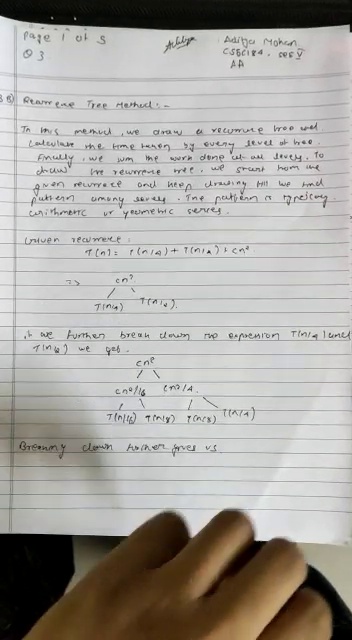 Page 1 of 5
Aditya Mohan
Q3
CSE
AA
Recurrence Tree Method:-
In this method, we draw a recurrence tree and
calculate the time taken by every level of tree.
Finally, we sum the work done at all levels. To
draw the recurrence tree, we start from the
given recurrence and keep drawing till we find
pattern among levels. The pattern is typically
arithmetic or geometric series.
Given recurrence:
T(n) = T(n/4) + T(n/2) + cn²
=> cn²
T(n/4) T(n/2).
If we further break down the expression T(n/4) and
T(n/2) we get.
cn²
cn²/16 cn²/4.
T(n/16) T(n/8) T(n/8) T(n/4)
Breaking down further gives us